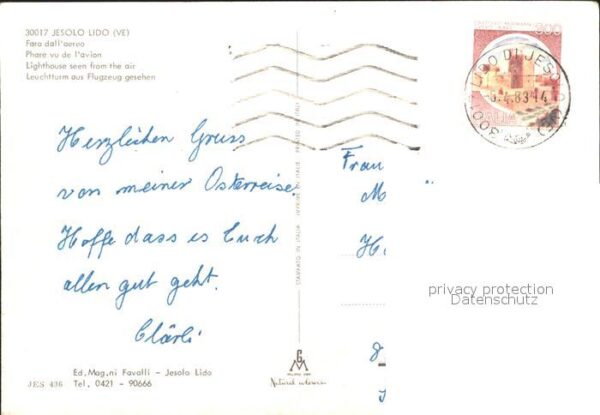 30017 JESOLO LIDO (VE)
Faro dall'aereo
Phare vu de l'avion
Lighthouse seen from the air
Leuchtturm aus Flugzeug gesehen
Herzlichen Gruss
von meiner Osterreise.
Hoffe dass es Euch
allen gut geht.
Clärli
Ed. Mag.ni Favalli - Jesolo Lido
JES 436 Tel. 0421 - 90666
STAMPATO IN ITALIA IMPRIMÉ EN ITALIE PRINTED IN ITALY
LIDO DI JESOLO
-5.4.83 14
300
Frau
M
H
privacy protection
Datenschutz